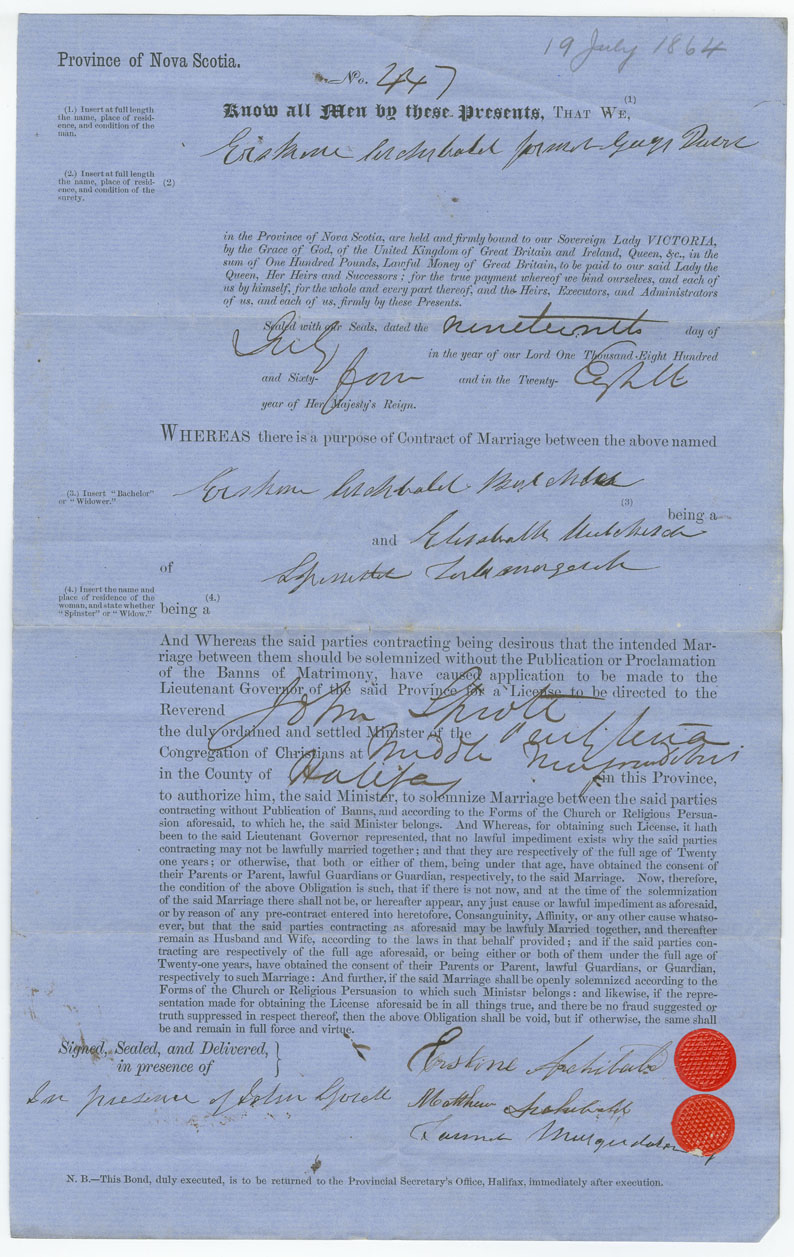 19 July 1864
Province of Nova Scotia.
No. 447
(1.) Insert at full length
the name, place of resid-
ence, and condition of the
man.
Know all Men by these Presents, THAT WE, (1)
Erskine Archibald farmer Gays River
(2.) Insert at full length
the name, place of resid-
ence, and condition of the
surety.
(2)
in the Province of Nova Scotia, are held and firmly bound to our Sovereign Lady VICTORIA,
by the Grace of God, of the United Kingdom of Great Britain and Ireland, Queen, &c., in the
sum of One Hundred Pounds, Lawful Money of Great Britain, to be paid to our said Lady the
Queen, Her Heirs and Successors; for the true payment whereof we bind ourselves, and each of
us by himself, for the whole and every part thereof, and the Heirs, Executors, and Administrators
of us, and each of us, firmly by these Presents.
Sealed with our Seals, dated the nineteenth day of
July in the year of our Lord One Thousand Eight Hundred
and Sixty- four and in the Twenty- Eighth
year of Her Majesty's Reign.
WHEREAS there is a purpose of Contract of Marriage between the above named
(3.) Insert "Bachelor"
or "Widower."
Erskine Archibald Bachelor
(3) being a
and Elisabeth
of Spinster
(4.) Insert the name and
place of residence of the
woman, and state whether
"Spinster" or "Widow."
(4.)
being a
And Whereas the said parties contracting being desirous that the intended Mar-
riage between them should be solemnized without the Publication or Proclamation
of the Banns of Matrimony, have caused application to be made to the
Lieutenant Governor of the said Province for a License to be directed to the
Reverend John Sprott
the duly ordained and settled Minister of the Presbyterian
Congregation of Christians at Middle Musquodoboit
in the County of Halifax in this Province,
to authorize him, the said Minister, to solemnize Marriage between the said parties
contracting without Publication of Banns, and according to the Forms of the Church or Religious Persua-
sion aforesaid, to which he, the said Minister belongs. And Whereas, for obtaining such License, it hath
been to the said Lieutenant Governor represented, that no lawful impediment exists why the said parties
contracting may not be lawfully married together; and that they are respectively of the full age of Twenty
one years; or otherwise, that both or either of them, being under that age, have obtained the consent of
their Parents or Parent, lawful Guardians or Guardian, respectively, to the said Marriage. Now, therefore,
the condition of the above Obligation is such, that if there is not now, and at the time of the solemnization
of the said Marriage there shall not be, or hereafter appear, any just cause or lawful impediment as aforesaid,
or by reason of any pre-contract entered into heretofore, Consanguinity, Affinity, or any other cause whatso-
ever, but that the said parties contracting as aforesaid may be lawfuly Married together, and thereafter
remain as Husband and Wife, according to the laws in that behalf provided; and if the said parties con-
tracting are respectively of the full age aforesaid, or being either or both of them under the full age of
Twenty-one years, have obtained the consent of their Parents or Parent, lawful Guardians, or Guardian,
respectively to such Marriage: And further, if the said Marriage shall be openly solemnized according to the
Forms of the Church or Religious Persuasion to which such Minister belongs: and likewise, if the repre-
sentation made for obtaining the License aforesaid be in all things true, and there be no fraud suggested or
truth suppressed in respect thereof, then the above Obligation shall be void, but if otherwise, the same shall
be and remain in full force and virtue.
Signed, Sealed, and Delivered,
in presence of
Erskine Archibald
In presence of John Sprott
Matthew Archibald
Farmer Musquodoboit
N. B.—This Bond, duly executed, is to be returned to the Provincial Secretary's Office, Halifax, immediately after execution.